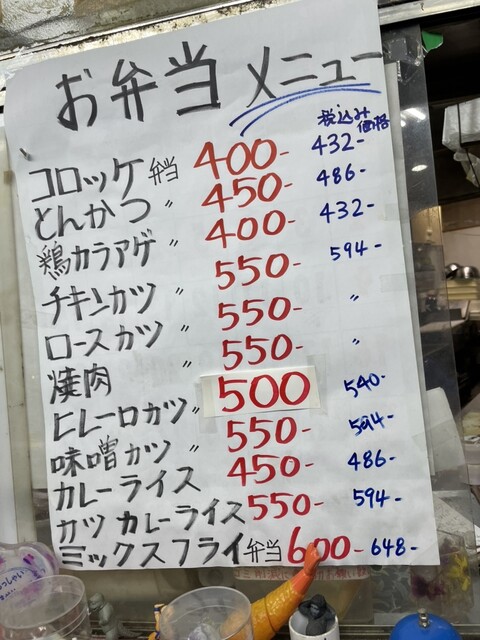 お弁当 メニュー
税込み
価格
コロッケ弁当 400- 432-
とんかつ 〃 450- 486-
鶏カラアゲ 〃 400- 432-
チキンカツ 〃 550- 594-
ロースカツ 〃 550- 〃
焼肉 〃 550- 〃
ヒレ一口カツ 〃 500 540-
味噌カツ 〃 550- 594-
カレーライス 450- 486-
カツカレーライス 550- 594-
ミックスフライ弁当 600- 648-